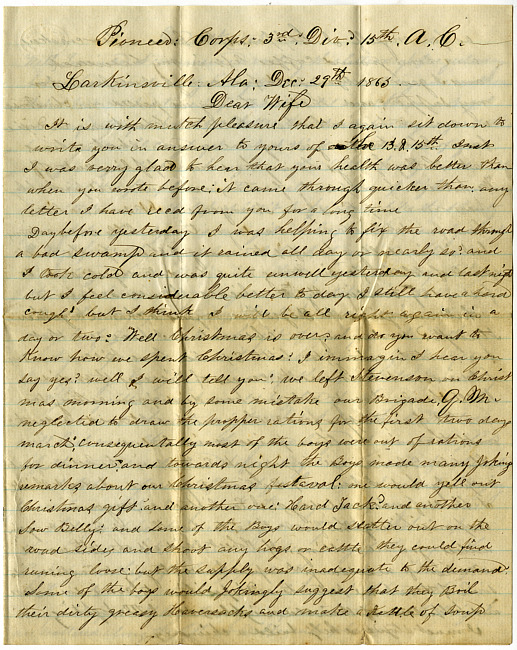 Pioneer: Corps: 3rd Div: 15th A. C.
Larkinsville. Ala: Dec: 29th 1863
Dear Wife
It is with mutch pleasure that I again sit down to
write you in answer to yours of the 13 & 15th Inst
I was verry glad to hear that your health was better than
when you wrote before; it came through quicker than any
letter I have recd from you for a long time
Day before yesterday I was helping to fix the road through
a bad swamp and it rained all day or nearly so; and
I took cold and was quite unwell yesterday and last night
but I feel considerable better to day I still have a hard
cough; but I think I will be all right again in a
day or two; Well Christmas is over; and do you want to
Know how we spent Christmas; I immagin I hear you
say yes? well I will tell you; we left Stevenson on Christ
mas morning and by some mistake our Brigade, Q. M.
neglected to draw the propper rations for the first two days
march; consequentally most of the boys were out of rations
for dinner; and towards night the Boys made many Joking
remarks about our Christmas festaval; one would yell out
Christmas gift and another one; Hard Jack; and another
Sow Belly; and some of the Boys would scatter out on the
road side; and shoot any hogs or cattle they could find
runing loose; but the supply was inadequate to the demand
some of the boys would Jokingly suggest that they Boil
their dirty greasy Haversacks and make a Kettle of Soup